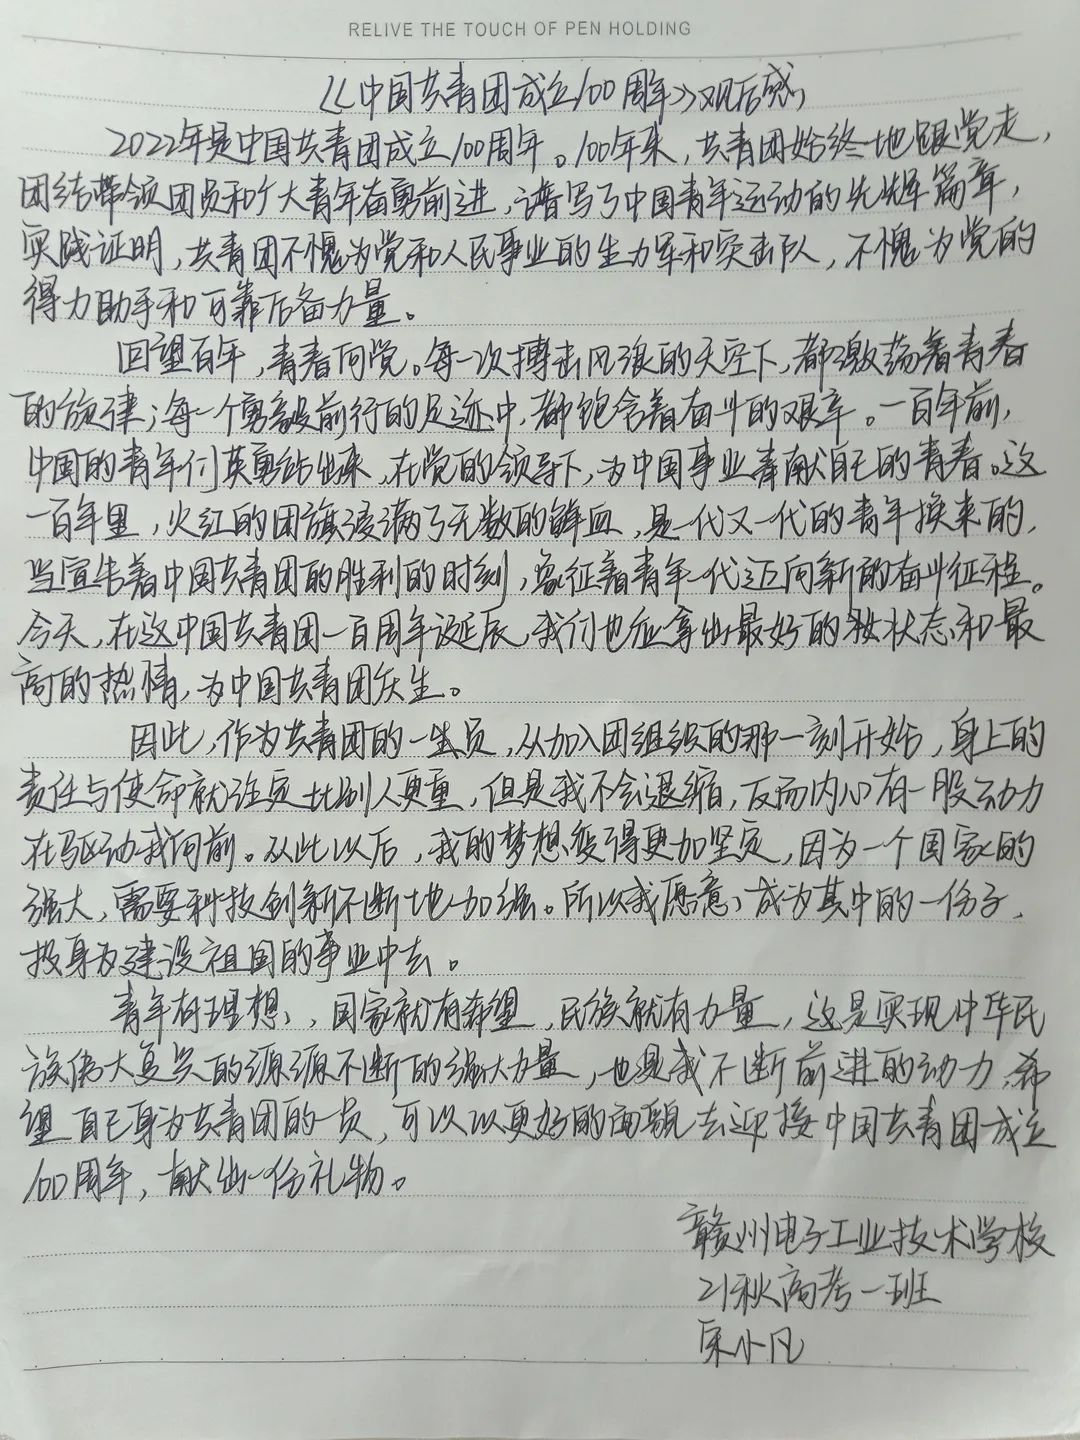 RELIVE THE TOUCH OF PEN HOLDING
《中国共青团成立100周年》观后感
2022年是中国共青团成立100周年。100年来，共青团始终地跟党走，
团结带领团员和广大青年奋勇前进，谱写了中国青年运动的光辉篇章，
实践证明，共青团不愧为党和人民事业的生力军和突击队，不愧为党的
得力助手和可靠后备力量。
回望百年，青春向党。每一次搏击风浪的天空下，都激荡着青春
的旋律；每一个勇毅前行的足迹中，都饱含着奋斗的艰辛。一百年前，
中国的青年们英勇站出来，在党的领导下，为中国事业奉献自己的青春。这
一百年里，火红的团旗浸满了无数的鲜血，是一代又一代的青年换来的，
当宣告着中国共青团的胜利的时刻，象征着青年一代迈向新的奋斗征程。
今天，在这中国共青团一百周年诞辰，我们也应拿出最好的状态和最
高的热情，为中国共青团庆生。
因此，作为共青团的一员，从加入团组织的那一刻开始，身上的
责任与使命就注定比别人更重，但是我不会退缩，反而内心有一股动力
在驱动我向前。从此以后，我的梦想变得更加坚定，因为一个国家的
强大，需要科技创新不断地加强。所以我愿意成为其中的一份子，
投身为建设祖国的事业中去。
青年有理想，国家就有希望，民族就有力量，这是实现中华民
族伟大复兴的源源不断的强大力量，也是我不断前进的动力，希
望自己身为共青团的一员，可以以更好的面貌去迎接中国共青团成立
100周年，献出一份礼物。
赣州电子工业技术学校
21秋高考一班
宋小凡